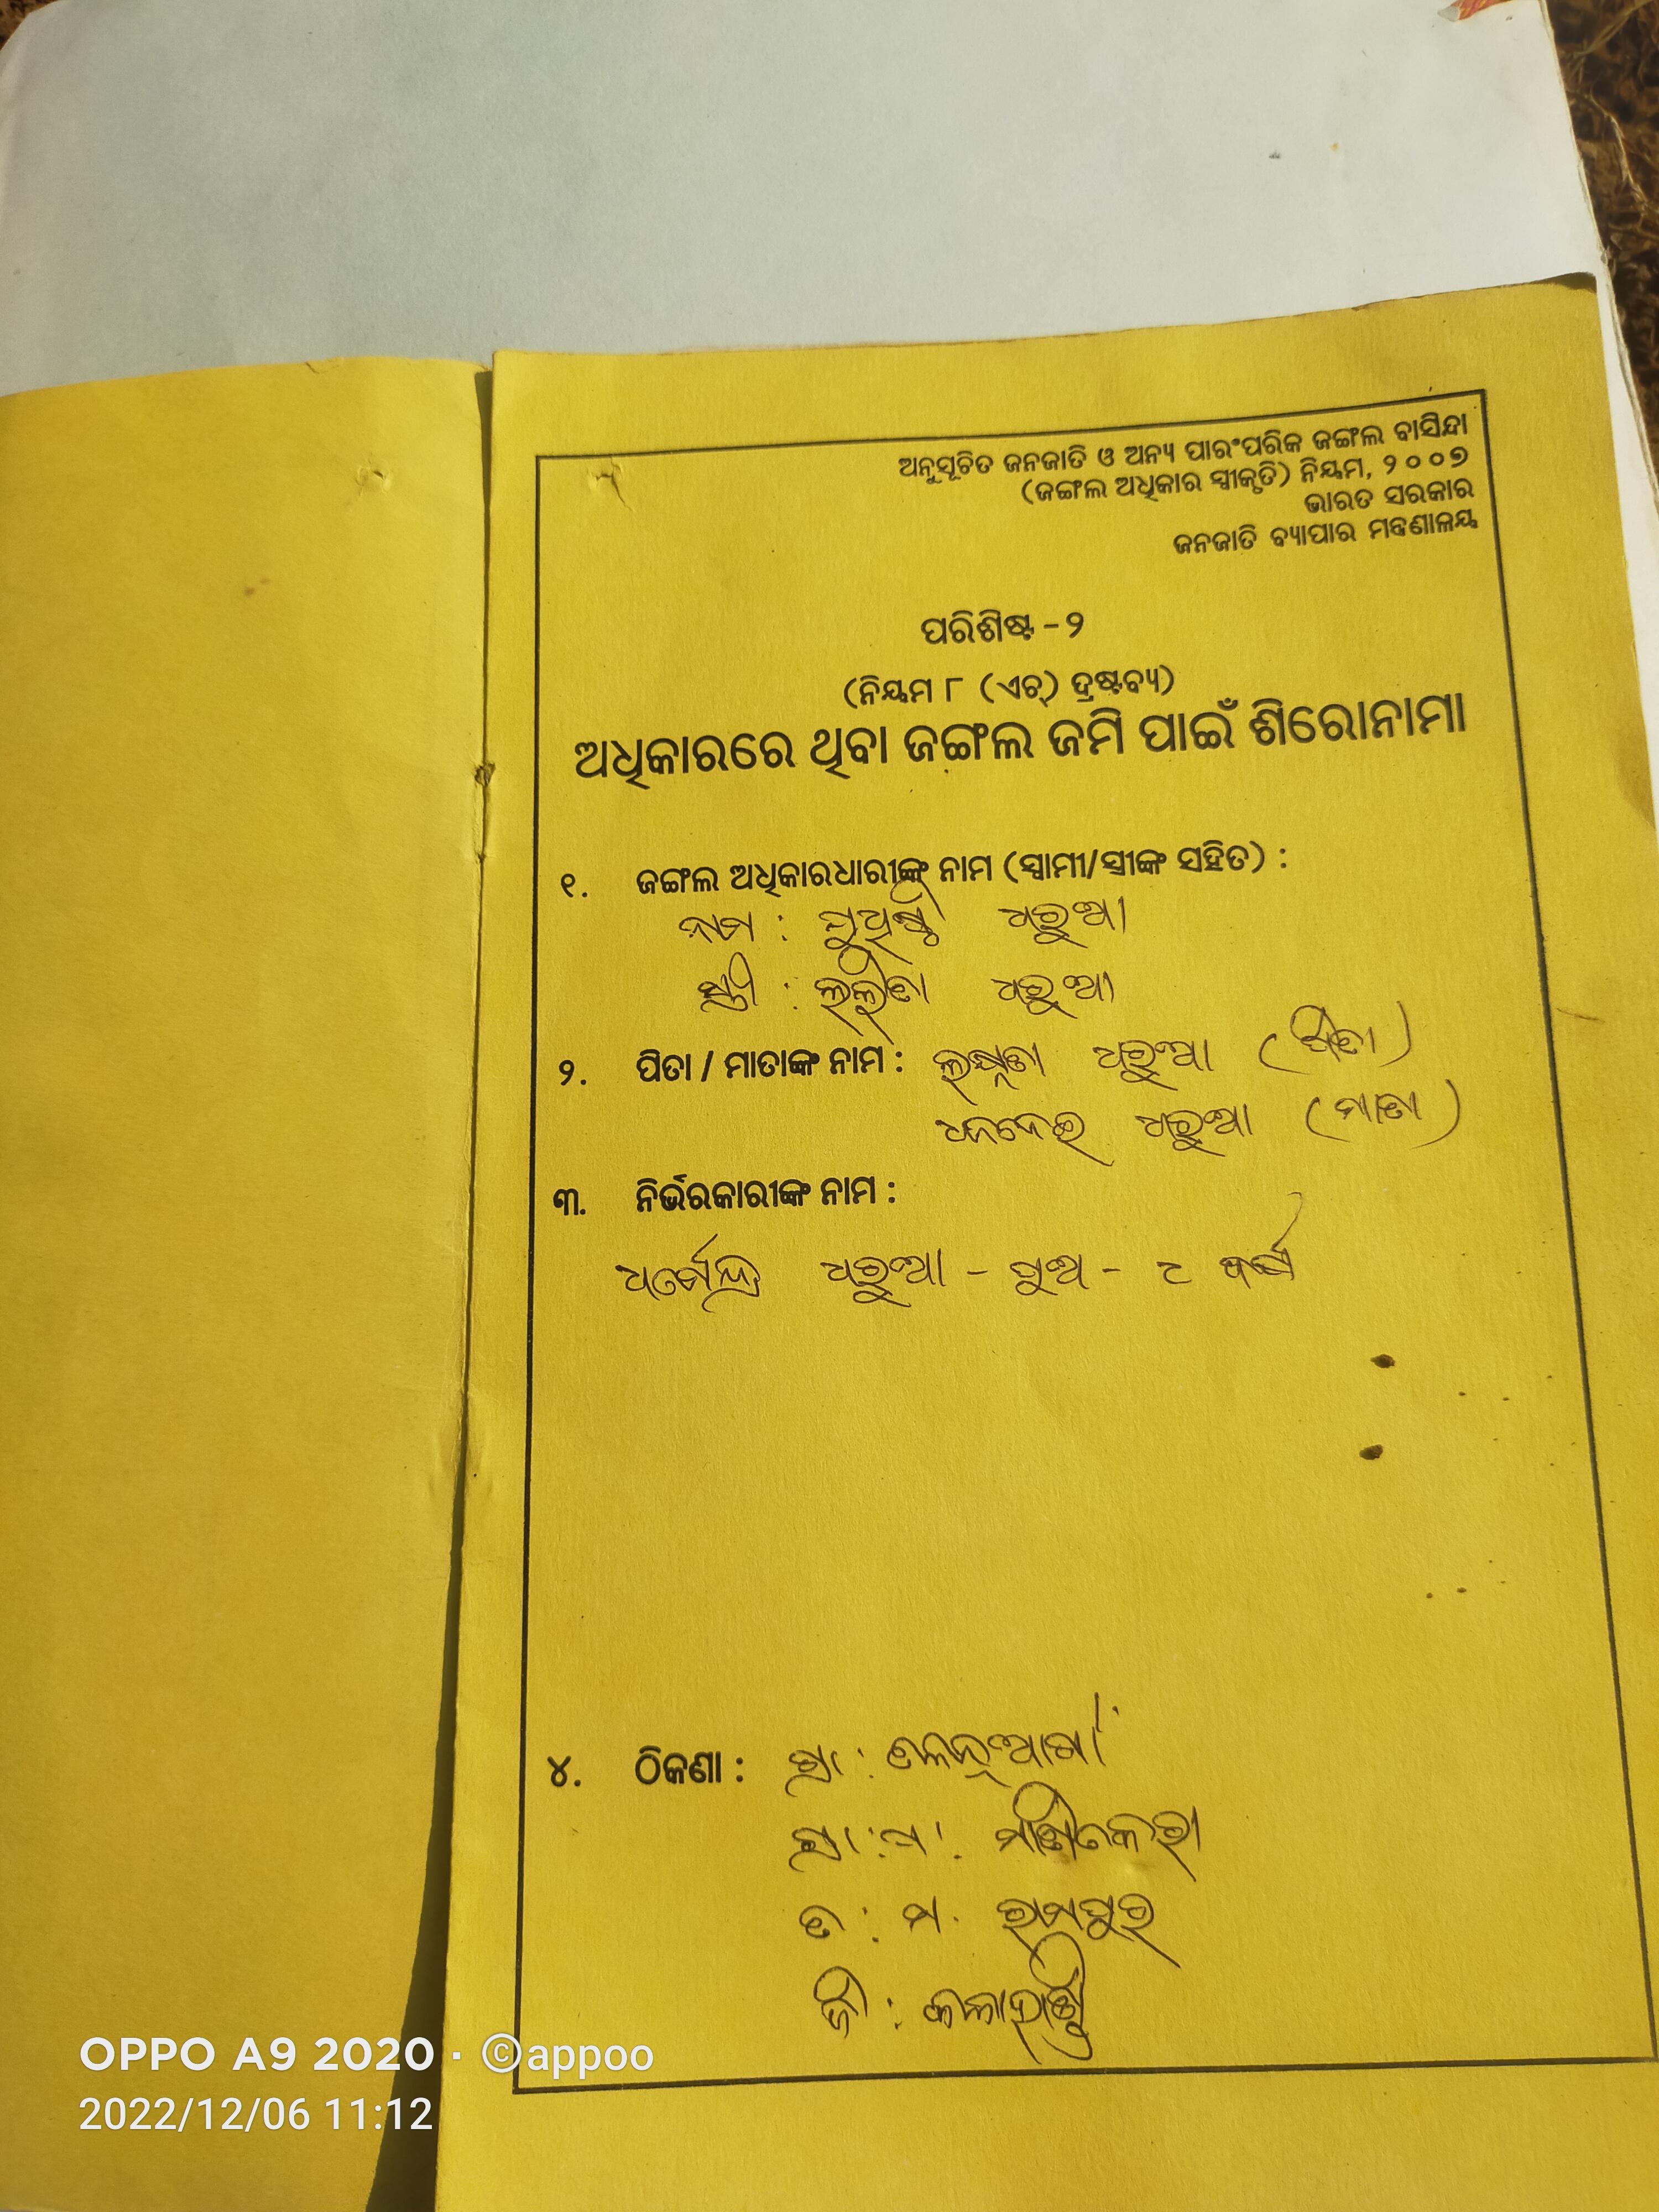 ଅନୁସୂଚିତ ଜନଜାତି ଓ ଅନ୍ୟ ପାରଂପରିକ ଜଙ୍ଗଲ ବାସିନ୍ଦା
(ଜଙ୍ଗଲ ଅଧିକାର ସ୍ୱୀକୃତି) ନିୟମ, ୨୦୦୭
ଭାରତ ସରକାର
ଜନଜାତି ବ୍ୟାପାର ମନ୍ତ୍ରଣାଳୟ
ପରିଶିଷ୍ଟ - ୨
(ନିୟମ ୮ (ଏଚ୍) ଦ୍ରଷ୍ଟବ୍ୟ)
ଅଧିକାରରେ ଥିବା ଜଙ୍ଗଲ ଜମି ପାଇଁ ଶିରୋନାମା
୧. ଜଙ୍ଗଲ ଅଧିକାରଧାରୀଙ୍କ ନାମ (ସ୍ୱାମୀ/ସ୍ତ୍ରୀଙ୍କ ସହିତ) :
ନାମ : ଧରୁଆ
ସ୍ତ୍ରୀ : ଲଳିତା ଧରୁଆ
୨. ପିତା / ମାତାଙ୍କ ନାମ : ଧରୁଆ (ପିତା)
ଧନଦେଇ ଧରୁଆ (ମାତା)
୩. ନିର୍ଭରକାରୀଙ୍କ ନାମ :
ଧର୍ମେନ୍ଦ୍ର ଧରୁଆ - ପୁଅ - ୯ ବର୍ଷ
୪. ଠିକଣା : ଗ୍ରା :
ଗ୍ରା : ପ :
ତ : ମ. ରାମପୁର
ଜି : କଳାହାଣ୍ଡି
OPPO A9 2020 · ©appoo
2022/12/06 11:12